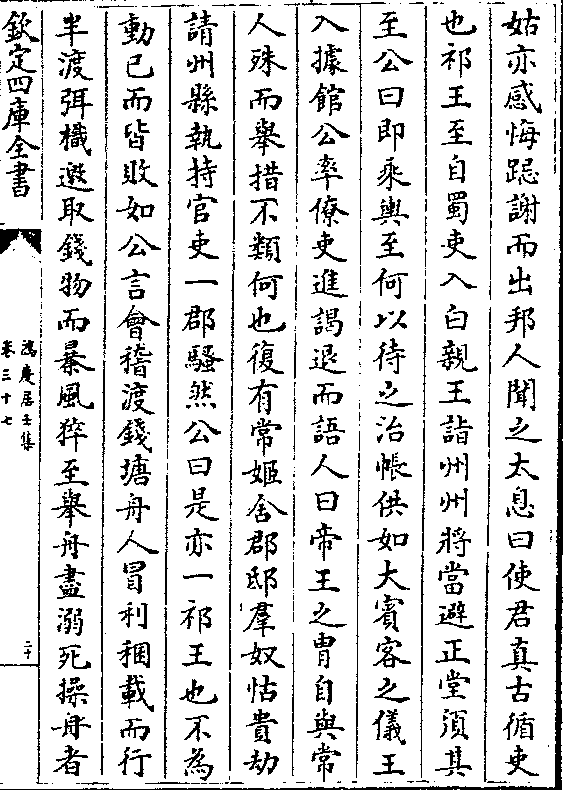 姑亦感悔跽謝而出邦人聞之太息曰使君真古循吏
也祁王至自蜀吏入白親王詣州州將當避正堂須其
至公曰即乘輿至何以待之治帳供如大賓客之儀王
入據館公率僚吏進謁退而語人曰帝王之胄自與常
人殊而舉措不類何也復有常姬舍郡邸羣奴怙貴劫
請州縣執持官吏一郡騷然公曰是亦一祁王也不為
動已而皆敗如公言會稽渡錢塘舟人冒利稛載而行
半渡弭檝邀取錢物而暴風猝至舉舟盡溺死操舟者
欽定四庫全書
鴻慶居士集
卷三十七
二十